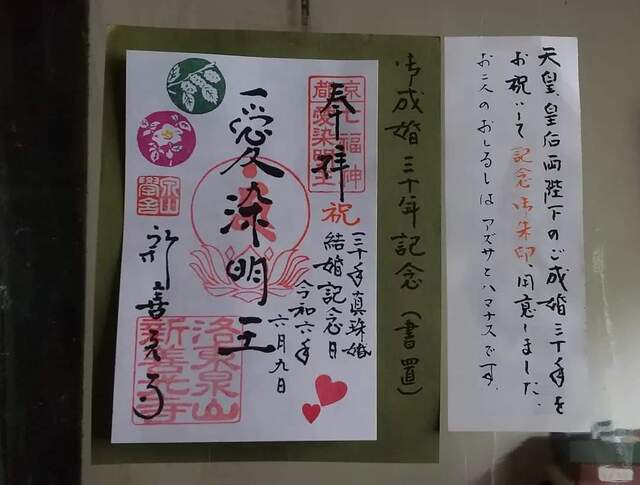 天皇皇后両陛下のご成婚三十年を
お祝いして記念御朱印、用意しました。
お二人のおしるしは アズサとハマナスです。
御成婚三十年記念（書置）
奉拝
祝
三十年真珠婚
結婚記念日
令和六年
六月九日
愛染明王
新善光寺
京
都
七福神
愛染明王
泉山
洛東泉山
新善光寺